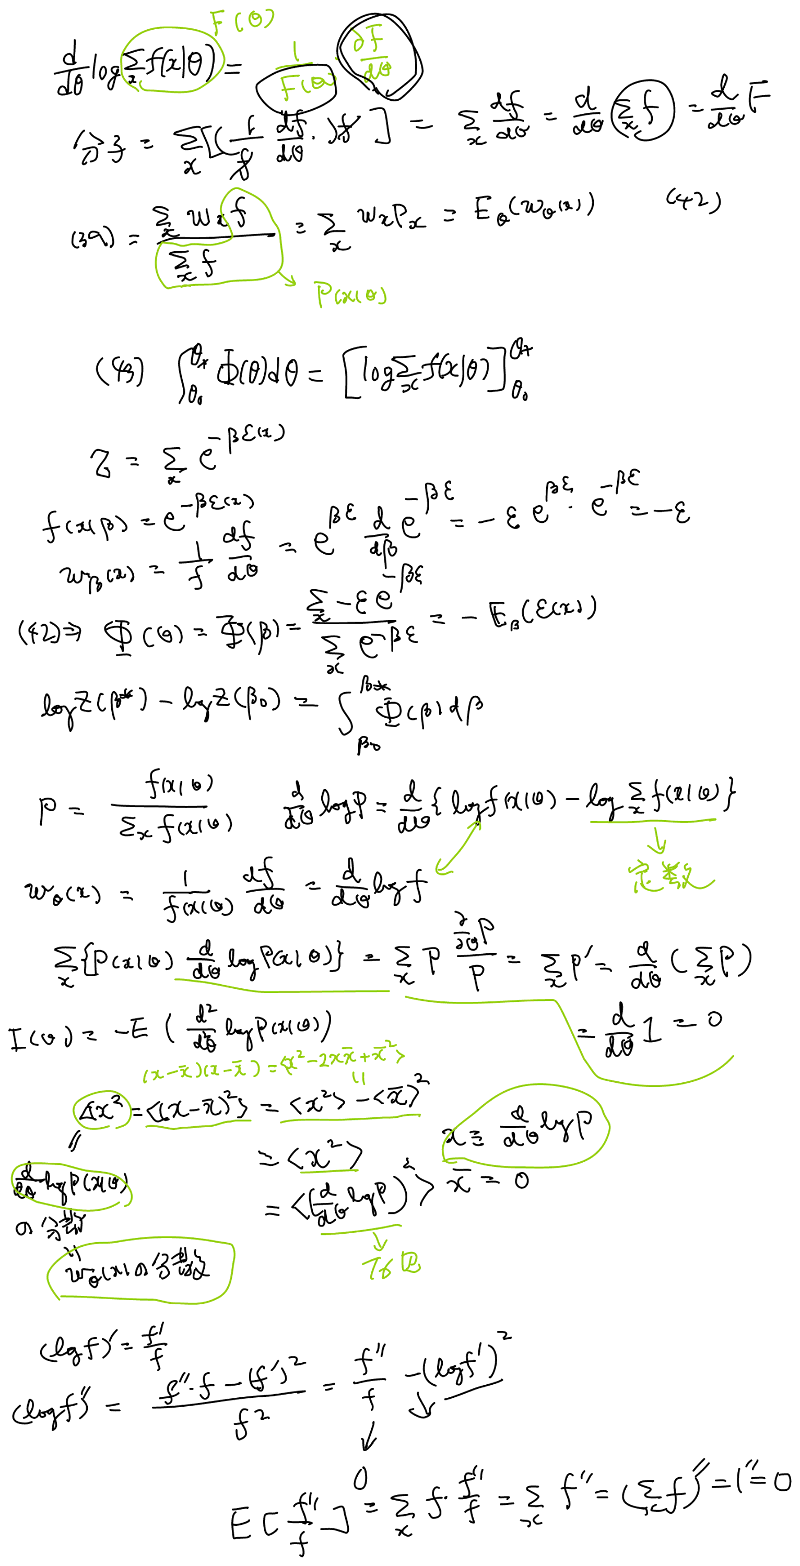 F(θ)
d/dθ log Σ_x f(x|θ) = 1/F(θ) · ∂F/dθ
分子 = Σ_x [(1/f df/dθ ·)f] = Σ_x df/dθ = d/dθ Σ_x f = d/dθ F
(39) = Σ_x w_x f / Σ_x f = Σ_x w_x P_x = E_θ(w_θ(x)) (42)
P(x|θ)
(43) ∫_θ₀^θ* Φ(θ)dθ = [log Σ_x f(x|θ)]_θ₀^θ*
Z = Σ_x e^{-βε(x)}
f(x|β) = e^{-βε(x)}
w_β(x) = 1/f df/dθ = e^{βε} d/dβ e^{-βε} = -ε e^{βε} · e^{-βε} = -ε
(42)⇒ Φ(θ) = Φ(β) = Σ_x -ε e^{-βε} / Σ_x e^{-βε} = -E_β(ε(x))
log Z(β*) - log Z(β₀) = ∫_β₀^β* Φ(β)dβ
P = f(x|θ) / Σ_x f(x|θ) d/dθ log P = d/dθ {log f(x|θ) - log Σ_x f(x|θ)}
定数
w_θ(x) = 1/f(x|θ) df/dθ = d/dθ log f
Σ_x {P(x|θ) d/dθ log P(x|θ)} = Σ_x P (∂/∂θ P)/P = Σ_x P' = d/dθ (Σ_x P)
= d/dθ 1 = 0
I(θ) = -E (d²/d²θ log P(x|θ))
(x-x̄)(x-x̄) = <x²-2xx̄+x̄²>
Δx² = <(x-x̄)²> = <x²> - <x̄>²
x ≡ d/dθ log P
= <x²>
x̄ = 0
= <(d/dθ log P)²>
d/dθ log P(x|θ)
の分散
w_θ(x)の分散
(log f)' = f'/f
(log f)'' = f''·f - (f')² / f² = f''/f - (log f')²
0
E[f''/f] = Σ_x f · f''/f = Σ_x f'' = (Σ_x f)'' = 1'' = 0